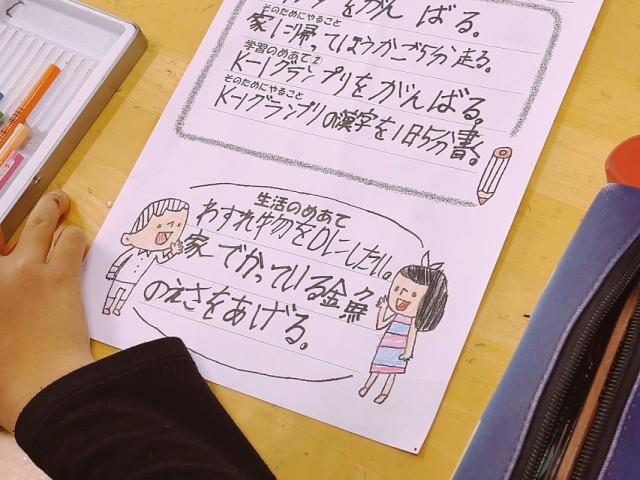 をがんばる。
そのためにやること
家に帰ってほうかご5分走る。
学習のめあて②
K-1グランプリをがんばる。
そのためにやること
K-1グランプリの漢字を1日5分書く。
生活のめあて
わすれ物を0にしたい。
家でかっている金魚
のえさをあげる。